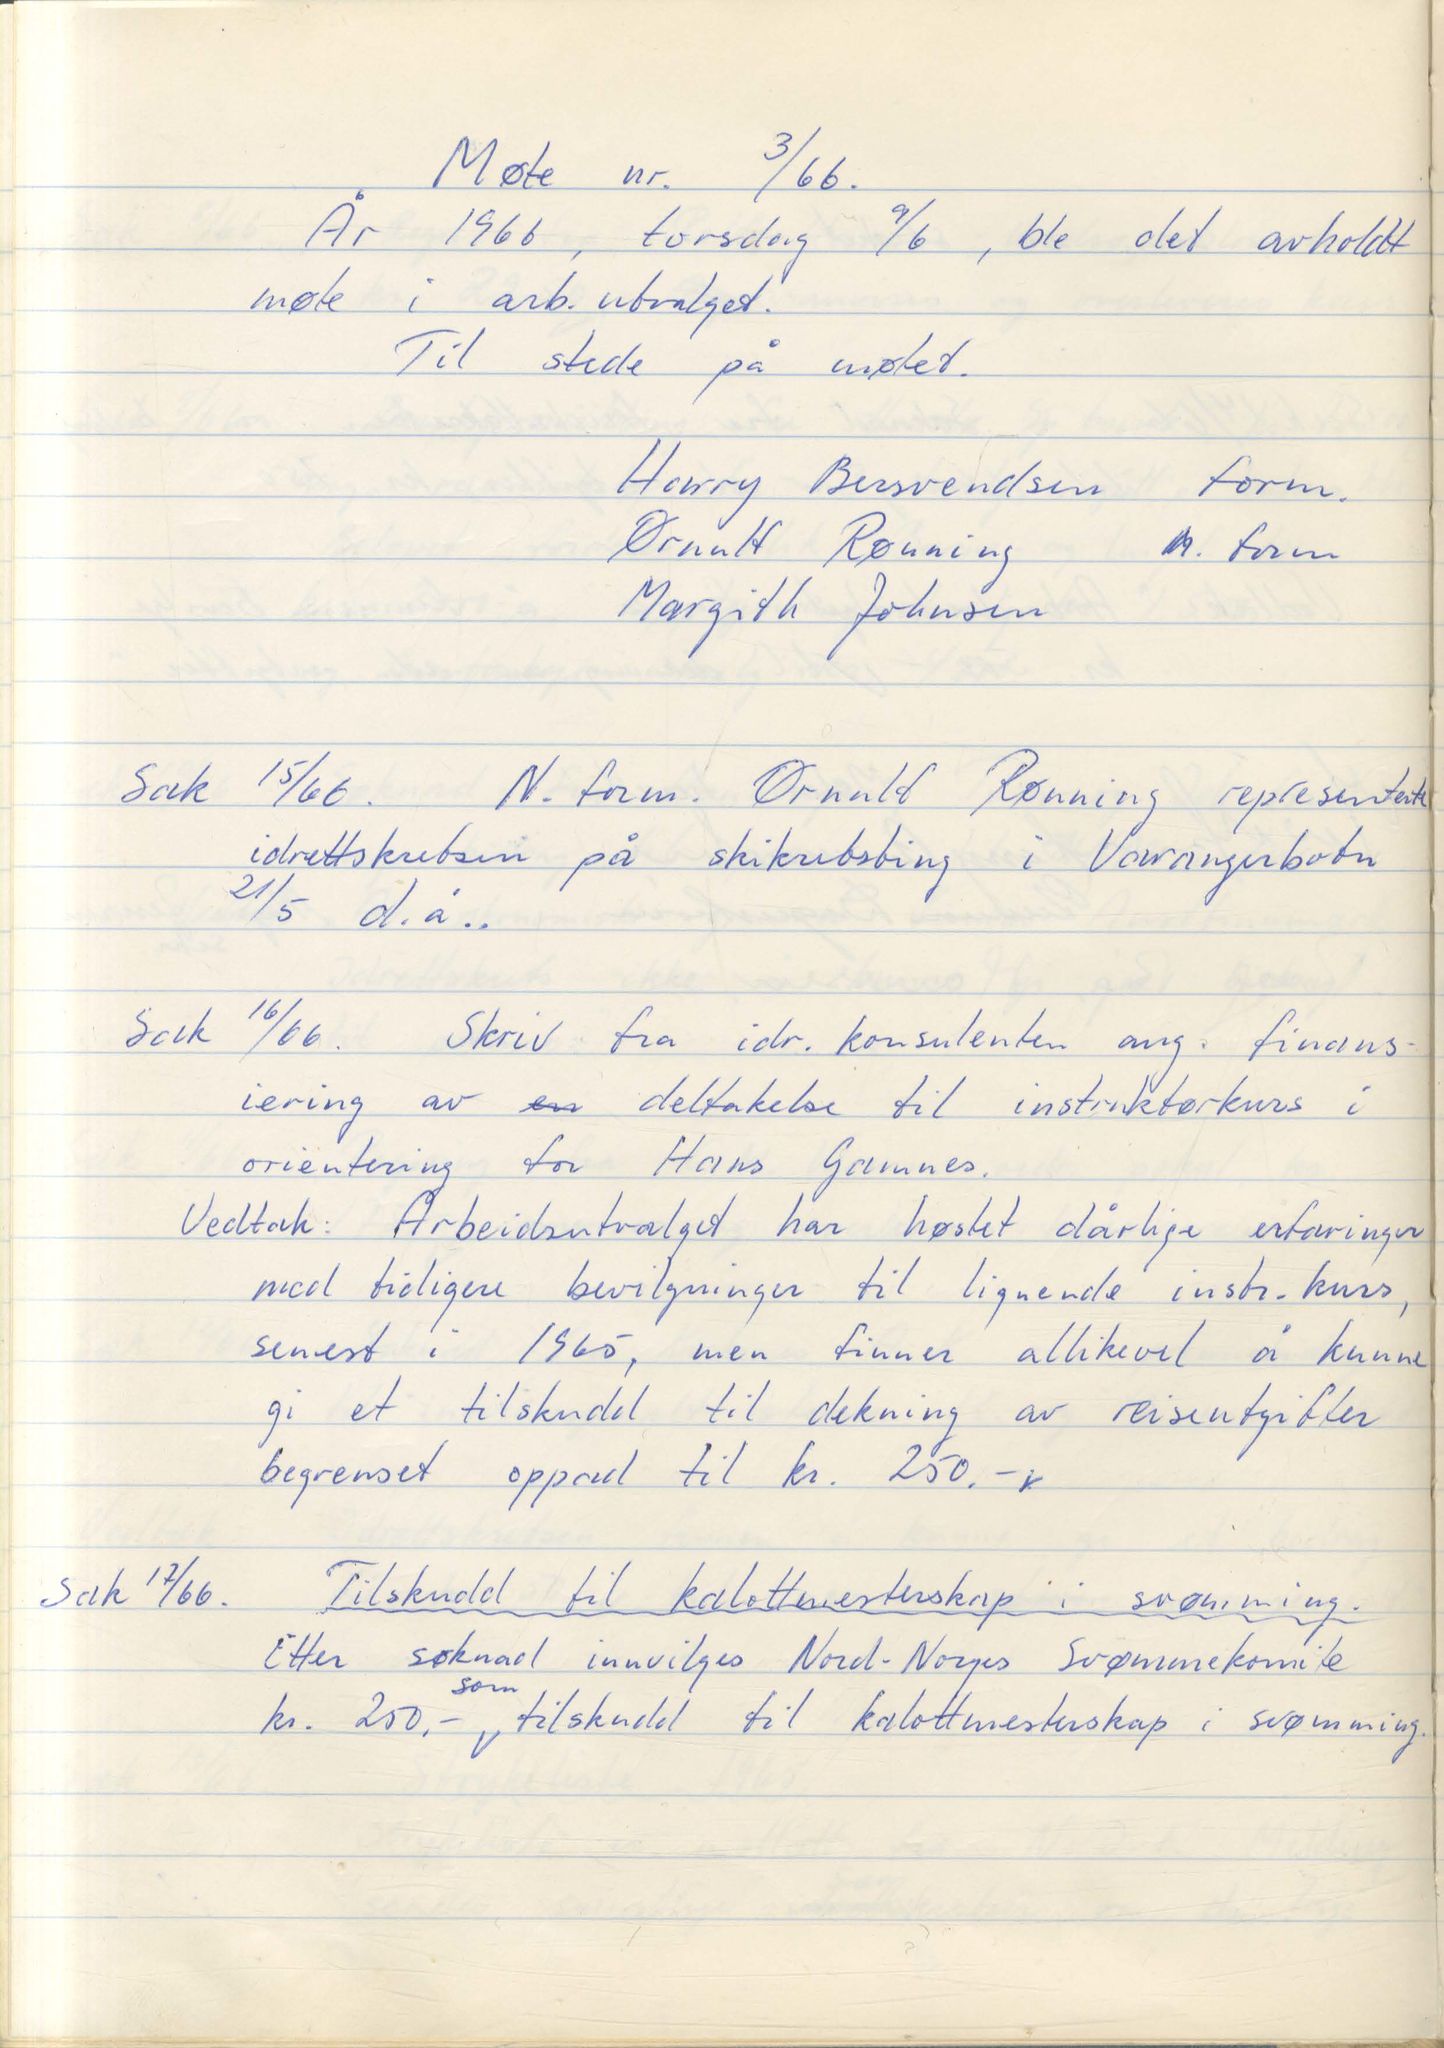 Møte nr. 3/66.
År 1966, torsdag 9/6, ble det avholdt
møte i arb. utvalget.
Til stede på møtet.
Harry Bersvendsen form.
Ørnulf Rønning n. form
Margith Johnsen
Sak 15/66. N. form. Ørnulf Rønning representerte
idrettskretsen på skikretsting i Varangerbotn
21/5 d.å..
Sak 16/66. Skriv fra idr. konsulenten ang. finans-
iering av en deltakelse til instruktørkurs i
orientering for Hans Gamnes.
Vedtak: Arbeidsutvalget har høstet dårlige erfaringer
med tidligere bevilgninger til lignende instr. kurs,
senest i 1965, men finner allikevel å kunne
gi et tilskudd til dekning av reiseutgifter
begrenset oppad til kr. 250.-
Sak 17/66. Tilskudd til kalottmesterskap i svømming.
Etter søknad innvilges Nord-Norges Svømmekomite
kr. 250,- som tilskudd til kalottmesterskap i svømming.